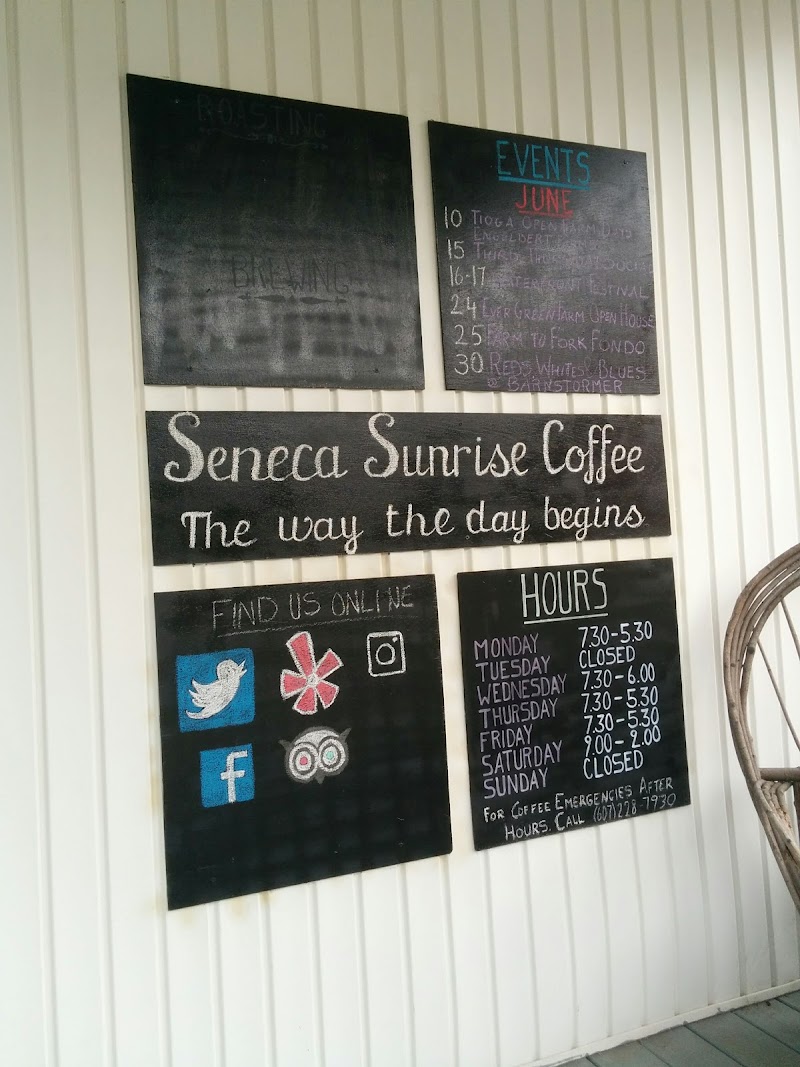 ROASTING
BREWING
EVENTS
JUNE
10 TIOGA OPEN FARM DAYS
ENGELDERT FARMS
15 THIRD THURSDAY SOCIAL
16-17 WATERFRONT FESTIVAL
24 EVERGREEN FARM OPEN HOUSE
25 FARM TO FORK FONDO
30 REDS WHITES BLUES
@ BARNSTORMER
Seneca Sunrise Coffee
The way the day begins
FIND US ONLINE
f
HOURS
MONDAY 7.30-5.30
TUESDAY CLOSED
WEDNESDAY 7.30-6.00
THURSDAY 7.30-5.30
FRIDAY 7.30-5.30
SATURDAY 9.00-2.00
SUNDAY CLOSED
FOR COFFEE EMERGENCIES AFTER
HOURS. CALL (607)228-7930